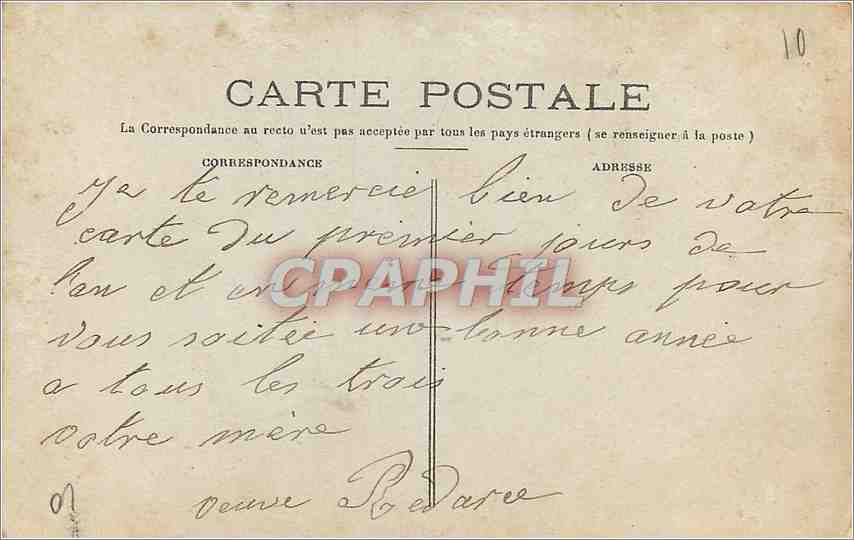 10
CARTE POSTALE
La Correspondance au recto n'est pas acceptée par tous les pays étrangers (se renseigner à la poste)
CORRESPONDANCE ADRESSE
Je te remercie bien de votre
carte du premier jours de
lan et en meme temps pour
vous saitée une bonne année
a tous les trois
votre mère
veuve Redarce
CPAPHIL